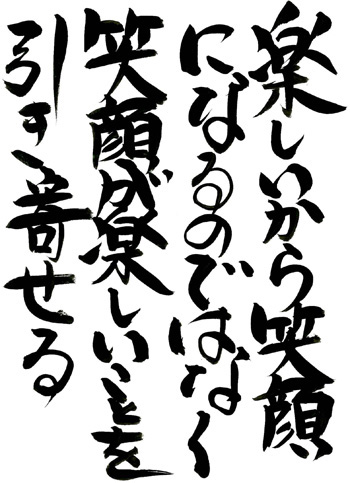 楽しいから笑顔
になるのではなく
笑顔が楽しいことを
引き寄せる